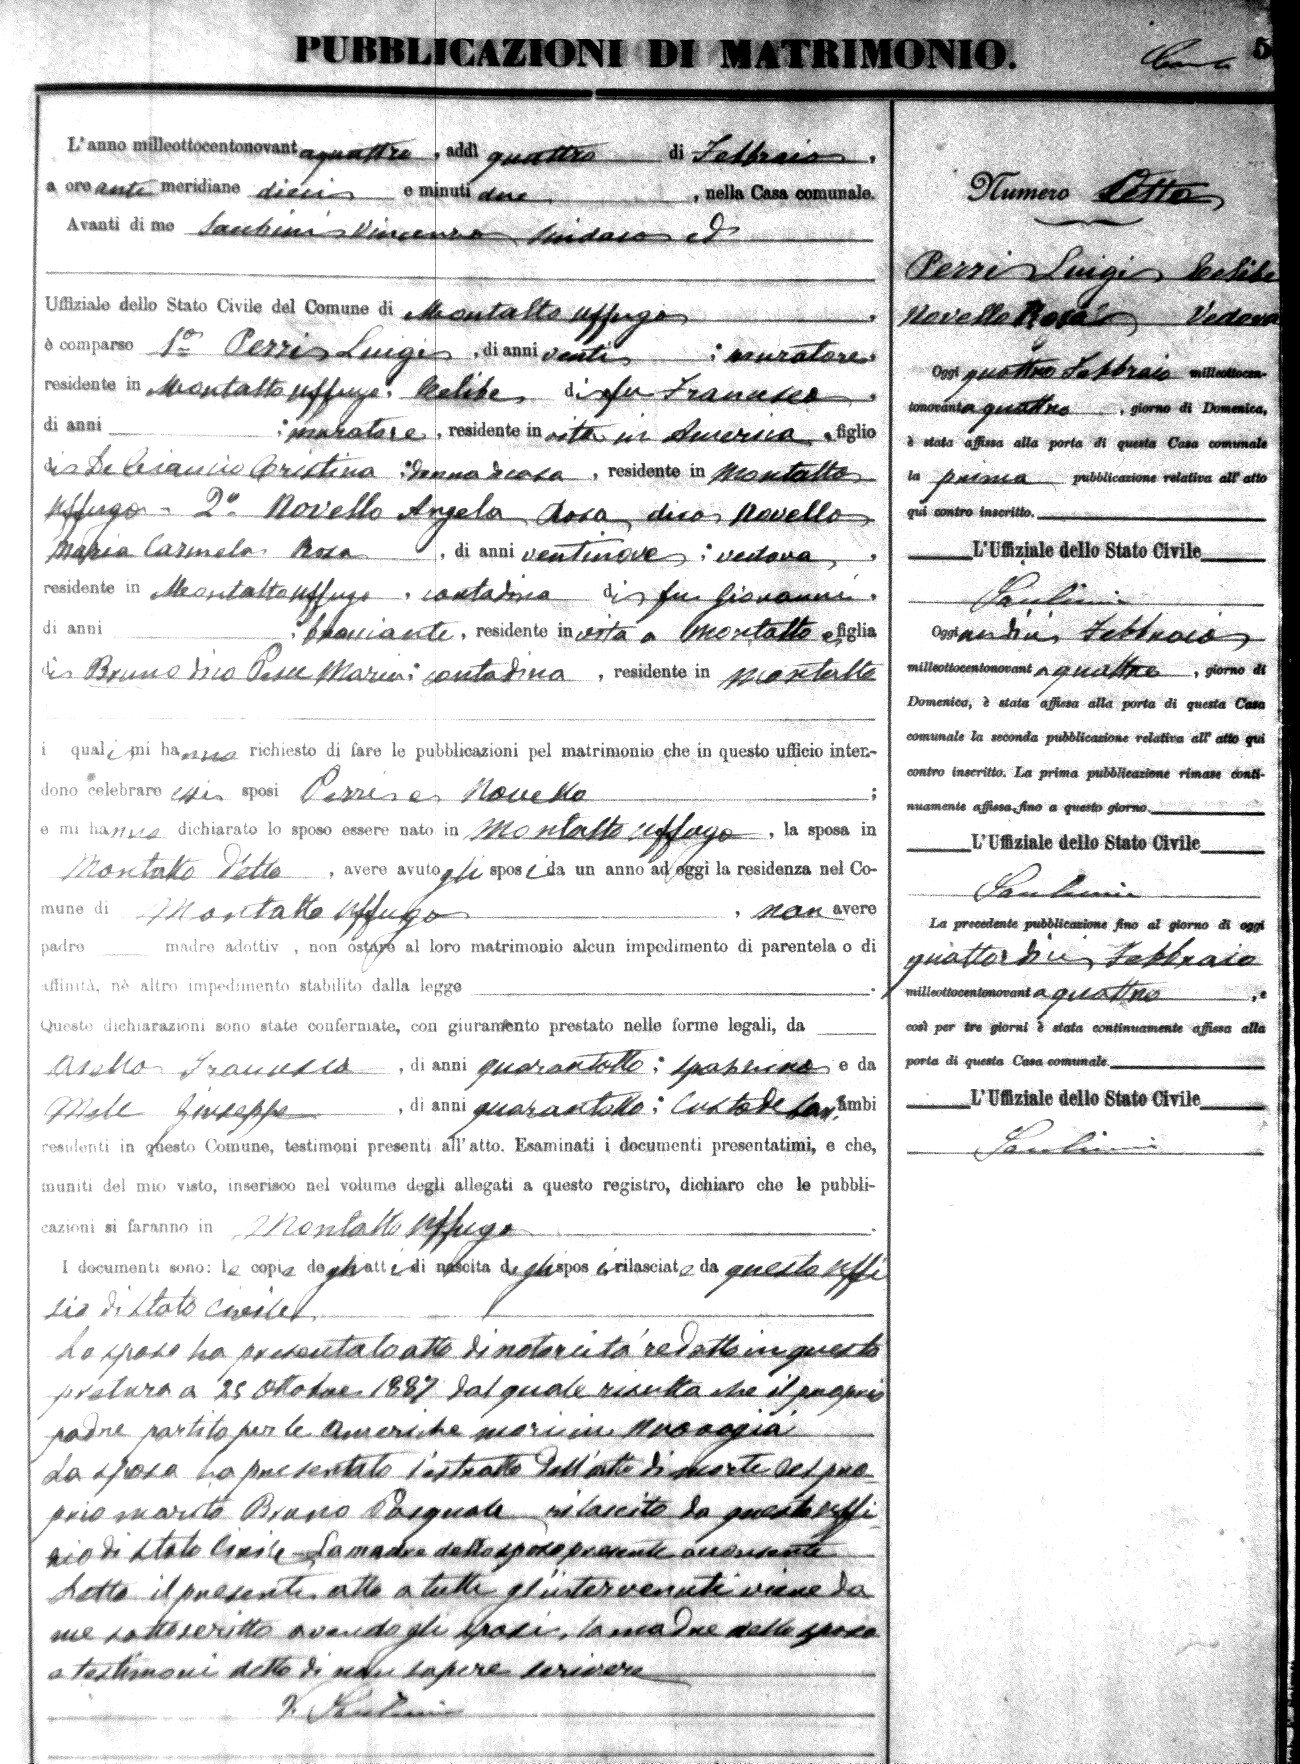 PUBBLICAZIONI DI MATRIMONIO.
5
L'anno milleottocentonovantaquattro, addì quattro di Febbraio,
a ore anti meridiane dieci e minuti due, nella Casa comunale.
Avanti di me Vincenzo Sindaco ed
Uffiziale dello Stato Civile del Comune di Montalto Uffugo,
è comparso 1º Perri Luigi, di anni venti; muratore
residente in Montalto Uffugo, Celibe di fu Francesco,
di anni ; muratore, residente in vita in America, figlio
di De Ciancio Cristina; donna di casa, residente in Montalto
Uffugo - 2º Novello Angela Rosa, dico Novello
Maria Carmela Rosa, di anni ventinove; vedova,
residente in Montalto Uffugo, contadina di fu Giovanni,
di anni ; bracciante, residente in vita a Montalto e figlia
di Bruno dico Pesce Maria; contadina, residente in Montalto
i quali mi hanno richiesto di fare le pubblicazioni pel matrimonio che in questo ufficio inten-
dono celebrare essi sposi Perri e Novello;
e mi hanno dichiarato lo sposo essere nato in Montalto Uffugo, la sposa in
Montalto detto, avere avuto gli sposi da un anno ad oggi la residenza nel Co-
mune di Montalto Uffugo, non avere
padre madre adottiv , non ostare al loro matrimonio alcun impedimento di parentela o di
affinità, nè altro impedimento stabilito dalla legge.
Queste dichiarazioni sono state confermate, con giuramento prestato nelle forme legali, da
Francesco, di anni quarantotto; spazzino e da
Mele Giuseppe, di anni quarantotto; Custode Car. ambi
residenti in questo Comune, testimoni presenti all'atto. Esaminati i documenti presentatimi, e che,
muniti del mio visto, inserisco nel volume degli allegati a questo registro, dichiaro che le pubbli-
cazioni si faranno in Montalto Uffugo.
I documenti sono: le copie degli atti di nascita degli sposi rilasciate da questo Uffi
zio di Stato Civile.
Lo sposo ha presentato atto di notorietà redatto in questa
pretura a 25 Ottobre 1887 dal quale risulta che il proprio
padre partito per le Americhe morì in
La sposa ha presentato l'estratto dell'atto di morte del pro-
prio marito Bruno Pasquale rilasciato da questo Uffi-
zio di Stato Civile - La madre dello sposo presente acconsente
Letto il presente atto a tutti gl'intervenuti viene da
me sottoscritto avendo gli sposi, la madre dello sposo
e testimoni detto di non sapere scrivere
Numero Otto
Perri Luigi Celibe
Novello Rosa Vedova
Oggi quattro Febbraio milleottocen-
tonovantaquattro, giorno di Domenica,
è stata affissa alla porta di questa Casa comunale
la prima pubblicazione relativa all'atto
qui contro inscritto.
L'Uffiziale dello Stato Civile
Oggi undici Febbraio
milleottocentonovantaquattro, giorno di
Domenica, è stata affissa alla porta di questa Casa
comunale la seconda pubblicazione relativa all'atto qui
contro inscritto. La prima pubblicazione rimase conti-
nuamente affissa fino a questo giorno.
L'Uffiziale dello Stato Civile
La precedente pubblicazione fino al giorno di oggi
quattordici Febbraio
milleottocentonovantaquattro, e
così per tre giorni è stata continuamente affissa alla
porta di questa Casa comunale.
L'Uffiziale dello Stato Civile